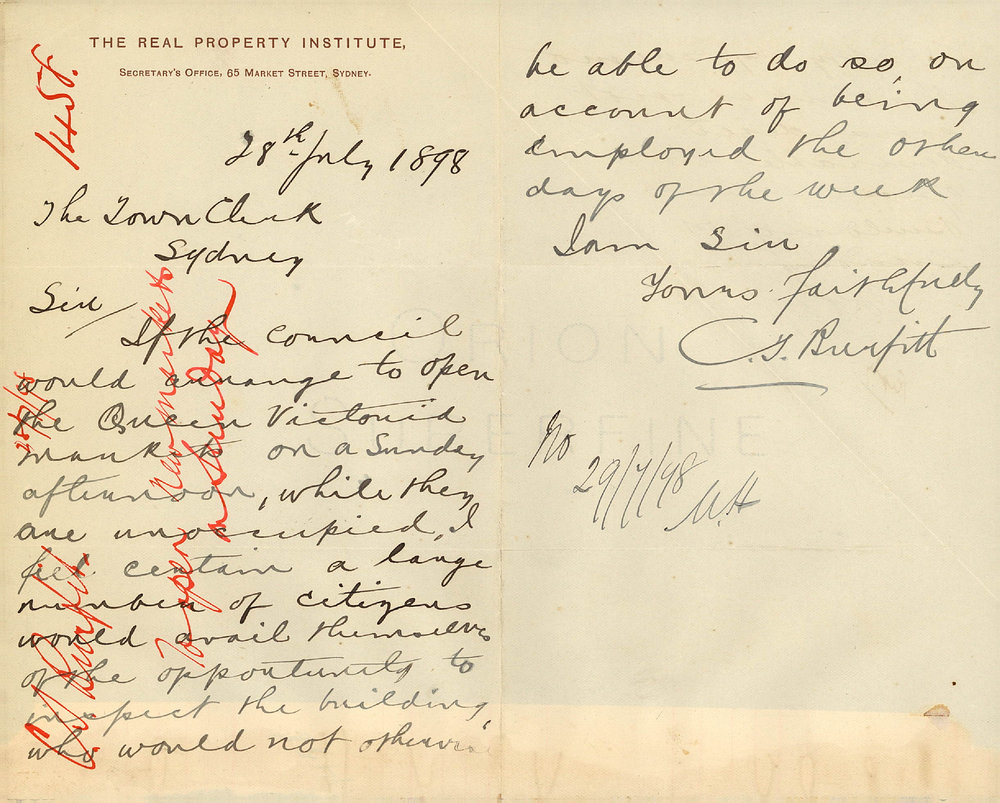 THE REAL PROPERTY INSTITUTE,
SECRETARY'S OFFICE, 65 MARKET STREET, SYDNEY.
28th July 1898
The Town Clerk
Sydney
Sir
If the Council
would arrange to open
the Queen Victoria
markets on a Sunday
afternoon, while they
are unoccupied, I
feel certain a large
number of citizens
would avail themselves
of the opportunity to
inspect the building,
who would not otherwise
1458.
28/7/98
C J Burfitt
To open new markets
on Sunday
be able to do so, on
account of being
employed the other
days of the week
I am Sir
Yours faithfully
C. J. Burfitt
No
29/7/98
M.H